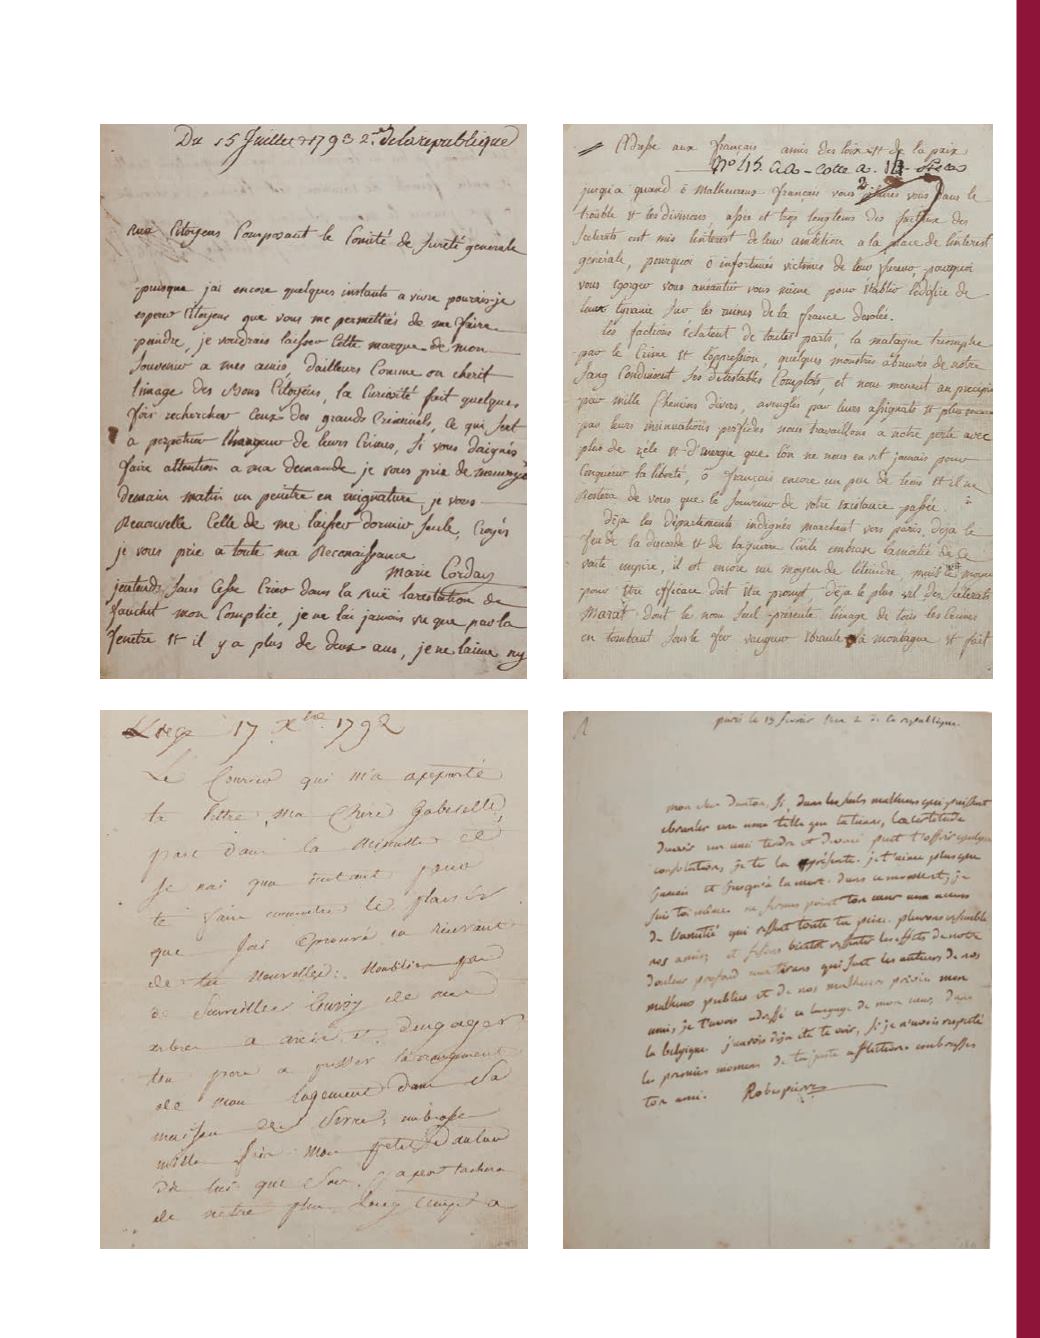 Du 15 Juillet 1793 2.e de la republique
aux Citoyens Composant le Comité de sureté generale
puisque jai encore quelques instants a vivre pourais-je
esperer Citoyens que vous me permettiés de me faire
peindre, je voudrais laisser Cette marque de mon
Souvenir a mes amis, d'ailleurs Comme on cherit
limage des Bons Citoyens, la Curiosité fait quelques
fois rechercher Ceux des grands Criminels, Ce qui sert
a perpetuer de leurs Crimes, Si vous daignés
faire attention a ma demande je vous prie de
demain matin un peintre en mignature je vous
Renouvelle Celle de me laisser dormir seule, Croyés
je vous prie a toute ma Reconaissance
Marie Corday
jentends Sans Cesse Crier dans la rue larestation de
fauchet mon Complice, je ne lai jamais vu que par la
fenetre et il y a plus de deux ans, je ne laime ny
Adresse aux français amis des loix et de la paix
jusqu'a quand ô malheureux français vous plairés vous dans le
trouble et les divisions, assés et trop longtems des factieux des
Scelerats ont mis linterest de leur ambition a la place de linterest
générale, pourquoi ô infortunés victimes de leur fureur pourquoi
vous égorger vous anéantir vous même pour établir lédifice de
leur tyranie Sur les ruines de la france desolée.
les factions éclatent de toutes parts, la montagne triomphe
par le Crime et loppression, quelques monstres abreuvés de notre
Sang Conduisent Ses détestables Complots, et nous menent au précipice
par mille Chemins divers,
nous travaillons a notre perte avec
plus de zèle et d'énergie que l'on ne nous en vit jamais pour
Conquerir la liberté, ô français encore un peu de tems et il ne
Restera de vous que le Souvenir de votre existance passée.
Déja les départements indignés marchent vers paris, déja le
feu de la discorde et de la guerre Civile embrase la moitié de Ce
vaste empire, il est encore un moyen de léteindre, mais le moyen
pour être efficace doit être prompt, déja le plus vil des Scélerats
Marat dont le nom Seul présente limage de tous les Crimes
en tombant Sous le fer vengeur ébranle la montagne et fait
Liege 17 Xbre 1792
Le Courier qui m'a apporté
ta lettre, ma Chere Gabrielle,
part dans la Minutte et
je nai que instant pour
te faire connoitre le plaisir
que jai éprouvé en recevant
de tes nouvelles. Noublie pas
de Surveiller de mes
arbres a arcis et dengager
ton pere a presser larangement
de mon logement dans Sa
maison de Sevre, embrasse
mille fois mon petit Danton
dis lui que Son papa tachera
de netre plus long temps a
paris le 15 fevrier l'an 2 de la republique
mon cher Danton, Si, dans les seuls malheurs qui puissent
ebranler une ame telle que la tienne, la certitude
d'avoir un ami tendre et devoué peut t'offrir quelque
consolation, je te la présente. je t'aime plus que
jamais et jusqu'à la mort. dans ce moment, je
suis toi même. ne ferme point ton cœur aux accens
de l'amitié qui ressent toute ta peine. pleurons ensemble
nos amis, et faisons bientôt ressentir les effets de notre
douleur profonde aux tirans qui sont les auteurs de nos
malheurs publics et de nos malheurs privés. mon
ami, je t'avois adressé ce langage de mon cœur, dans
la belgique. j'aurois déja été te voir, si je n'avois respecté
les premiers momens de ta juste affliction. embrasse
ton ami. Robespierre